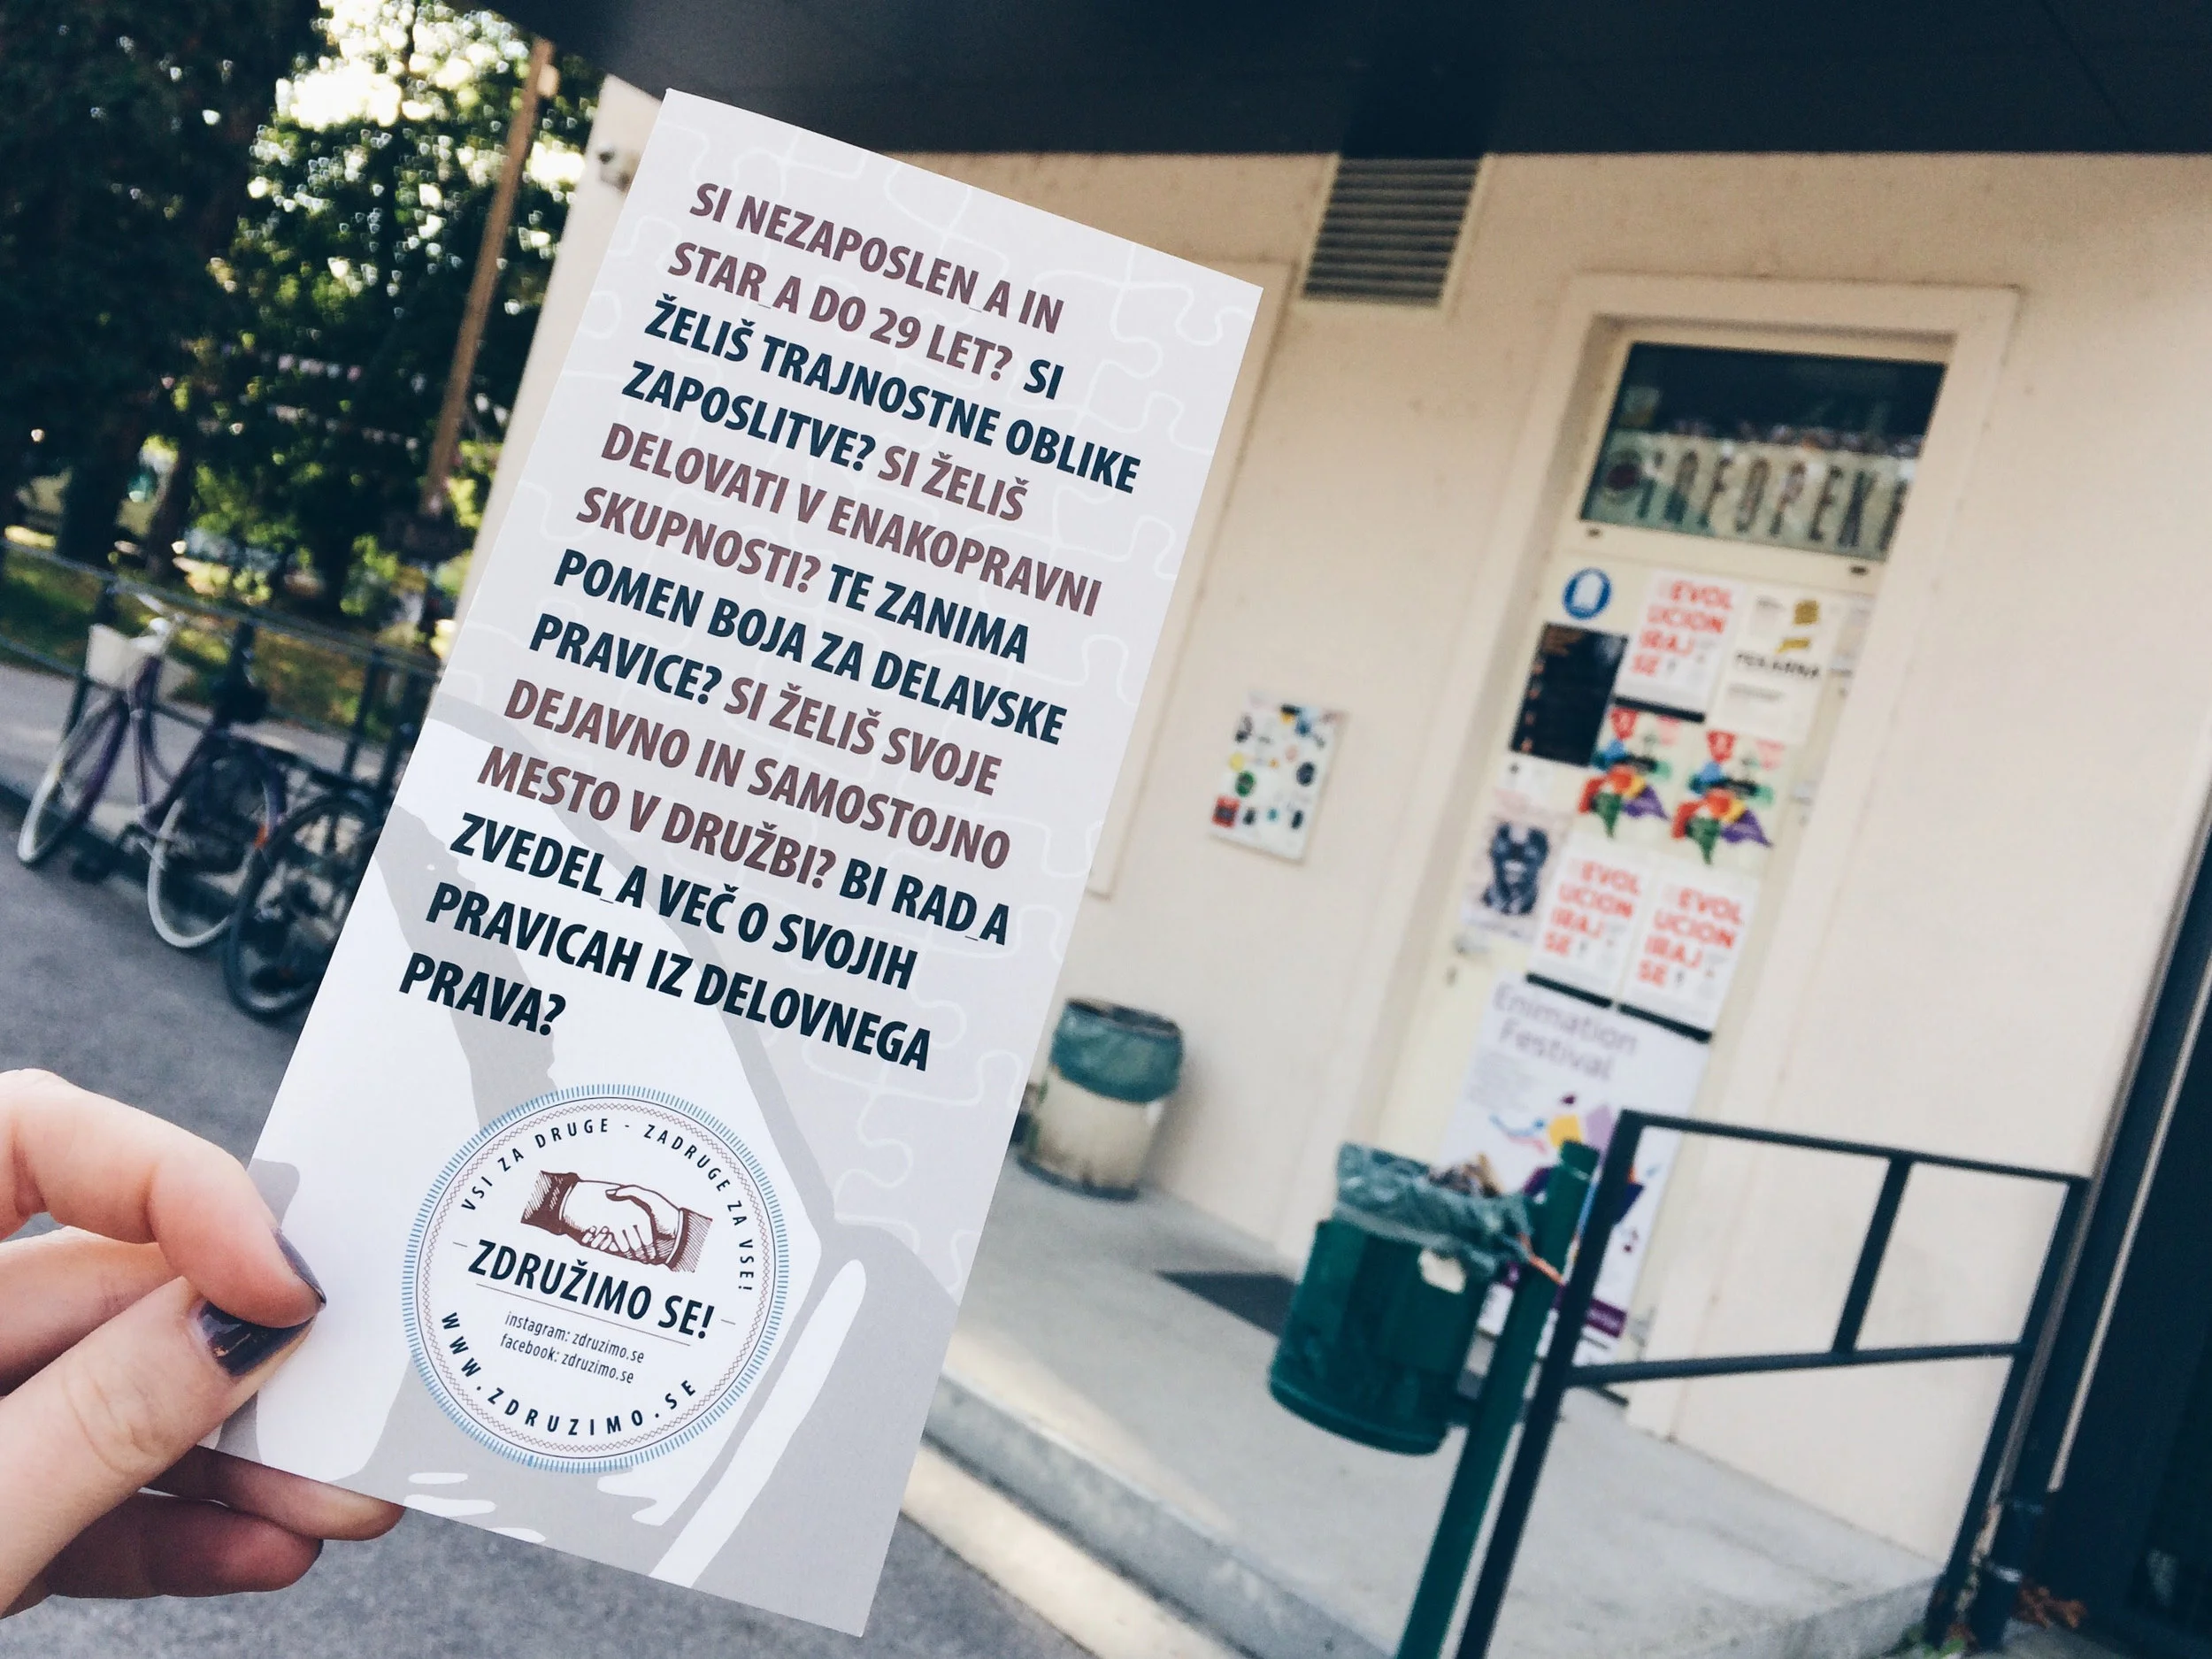 SI NEZAPOSLEN_A IN
STAR_A DO 29 LET? SI
ŽELIŠ TRAJNOSTNE OBLIKE
ZAPOSLITVE? SI ŽELIŠ
DELOVATI V ENAKOPRAVNI
SKUPNOSTI? TE ZANIMA
POMEN BOJA ZA DELAVSKE
PRAVICE? SI ŽELIŠ SVOJE
DEJAVNO IN SAMOSTOJNO
MESTO V DRUŽBI? BI RAD_A
ZVEDEL_A VEČ O SVOJIH
PRAVICAH IZ DELOVNEGA
PRAVA?
VSI ZA DRUGE - ZADRUGE ZA VSE!
ZDRUŽIMO SE!
instagram: zdruzimo.se
facebook: zdruzimo.se
WWW.ZDRUZIMO.SE
EVOL
UCION
IRAJ
SE!
PEKARNA
EVOL
UCION
IRAJ
SE!
EVOL
UCION
IRAJ
SE!
Enimation
Festival